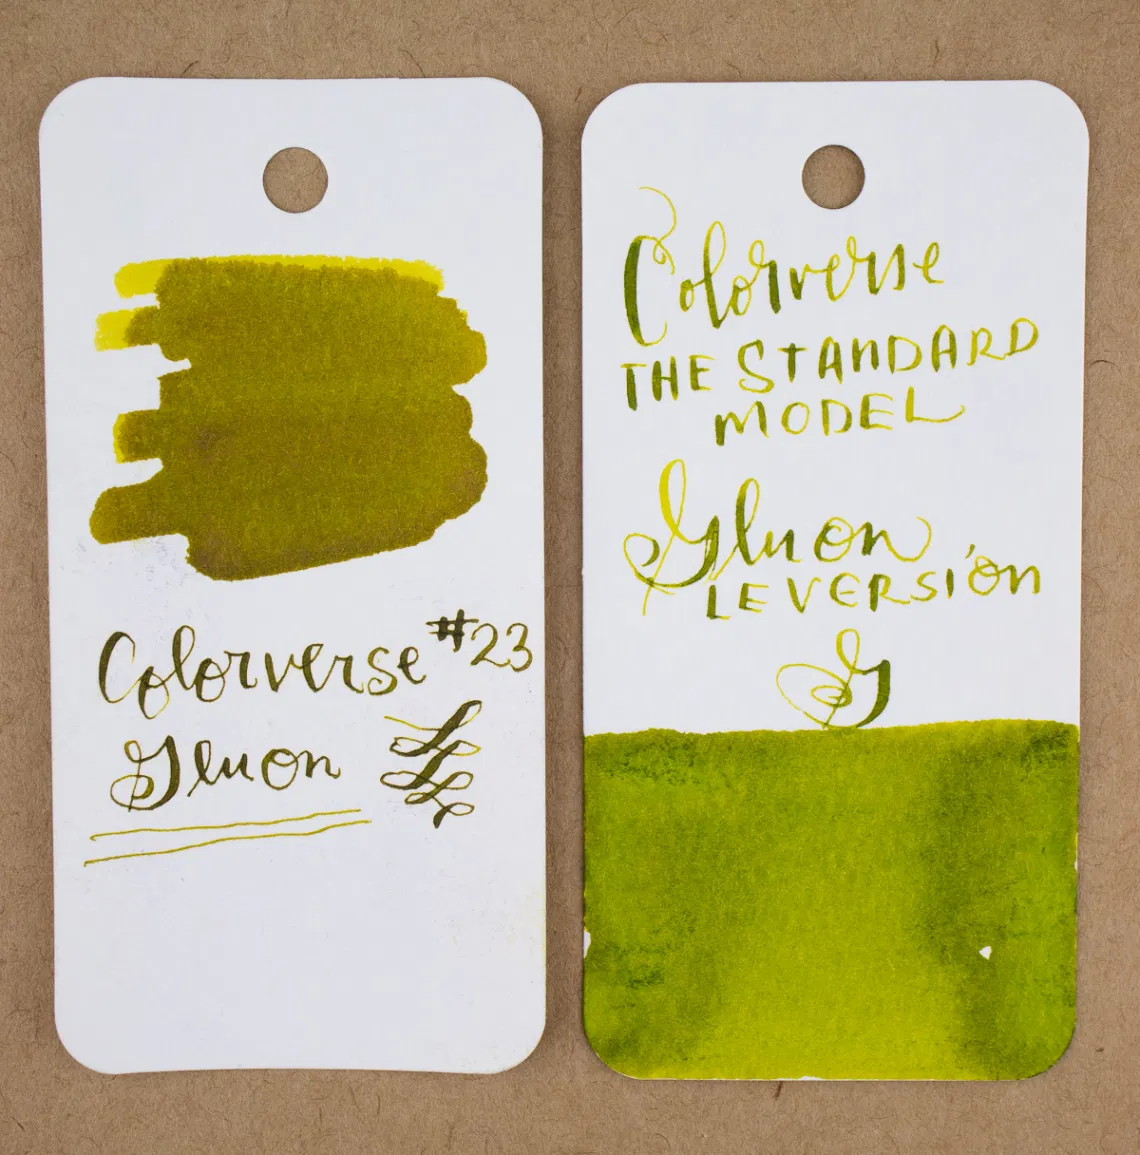 Colorverse #23
Gluon
Colorverse
THE STANDARD
MODEL
Gluon
LE VERSION
G